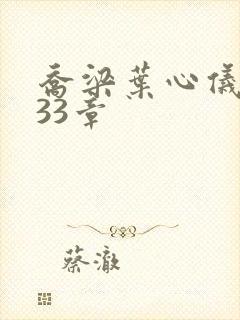 乔梁葉心儀
33章
蔡澈